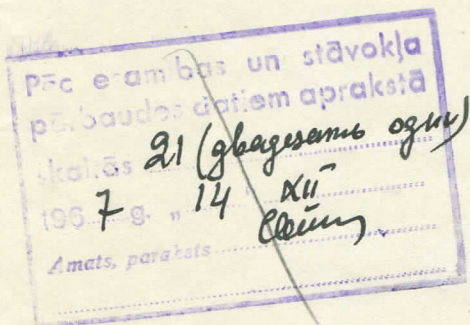 Pēc esamības un stāvokļa
pārbaudes datiem aprakstā
skaitās 21 (двадцать один)
1967 g. „ 14 " XII
Amats, paraksts